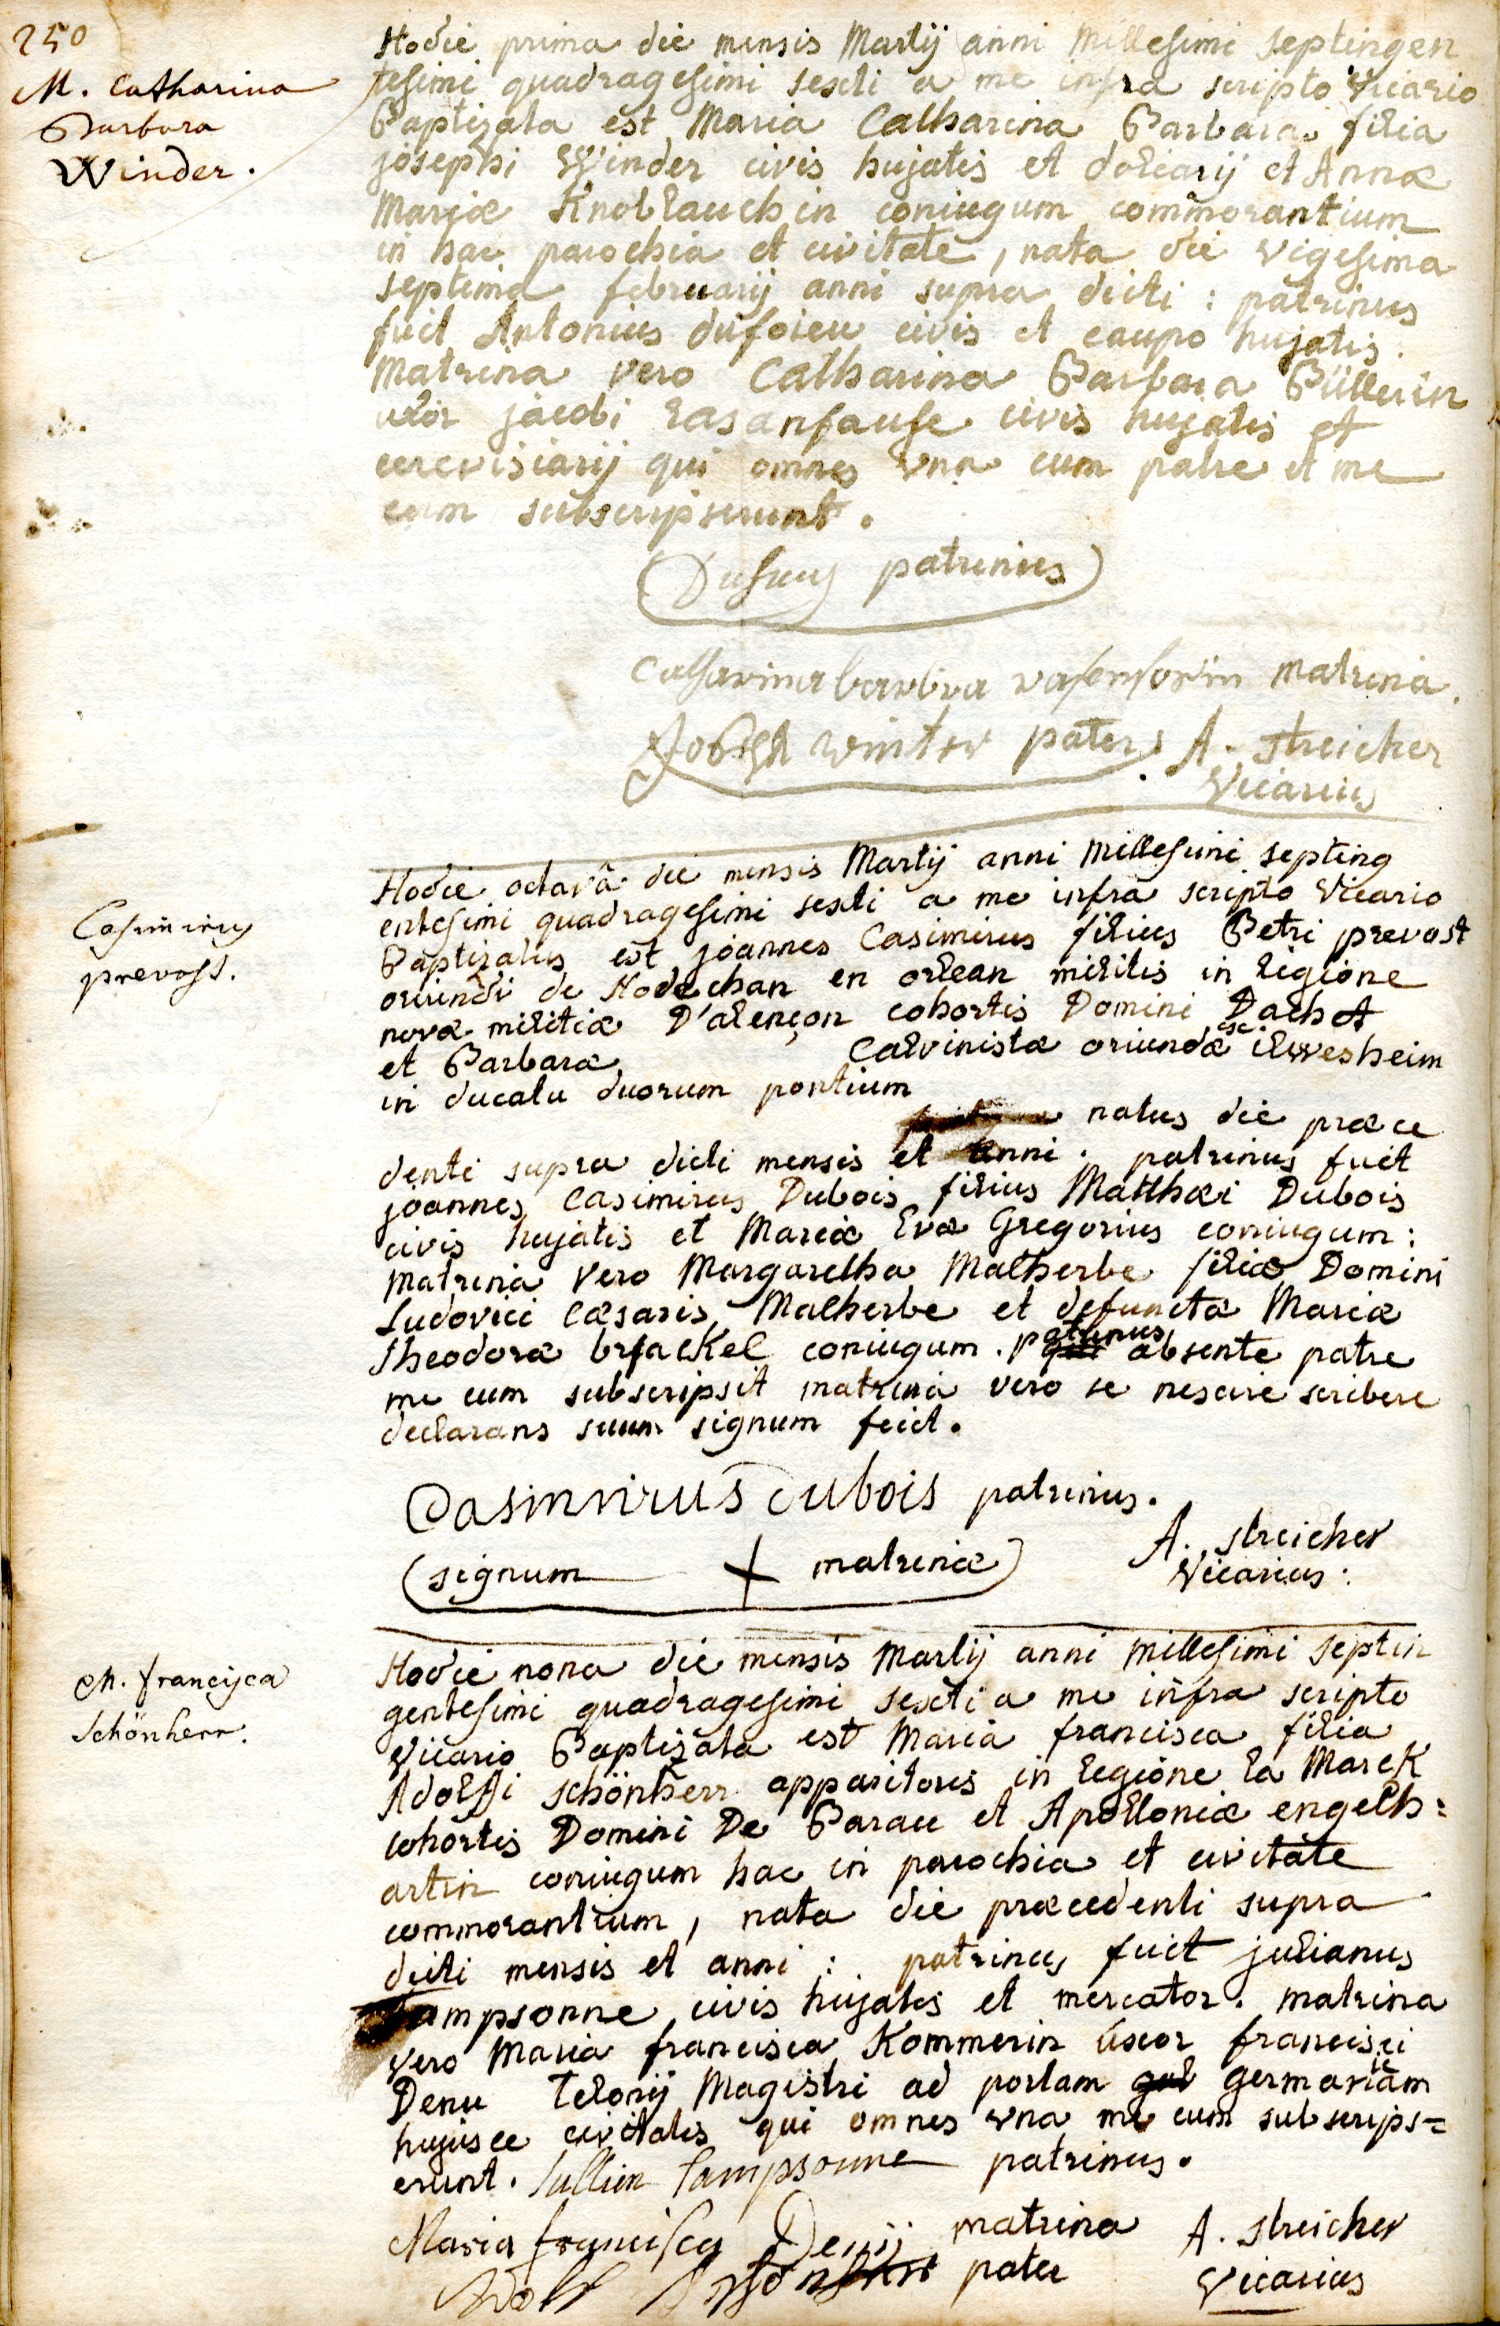 250
M. Catharina
Barbara
Winder.
Hodie prima die mensis Martij anni Millesimi septingen
tesimi quadragesimi sexti a me infra scripto Vicario
Baptizata est Maria Catharina Barbara filia
josephi Winder civis hujatis et doliarij et Annæ
Mariæ Knoblauchin coniugum commorantium
in hac parochia et civitate, nata die vigesima
septima februarij anni supra dicti : patrinus
fuit Antonius dufoieu civis et caupo hujatis.
Matrina vero Catharina Barbara Büllerin
uxor jacobi Rasanfause civis hujatis et
cerevisiarij qui omnes una cum patre et me
cum subscripserunt.
patrinus
Catharina barbra matrina.
winter pater A. streicher
Vicarius
Casimirus
prevost.
Hodie octavâ die mensis Martij anni Millesimi septing
entesimi quadragesimi sexti a me infra scripto Vicario
Baptizatus est joannes Casimirus filius Petri prevost
oriundi de Hodechan en orlean militis in legione
novæ militiæ D'alençon cohortis Domini Dachet
et Barbaræ Calvinistæ oriundæ ex ilwesheim
in ducatu duorum pontium
natus die præce
denti supra dicti mensis et anni. patrinus fuit
joannes Casimirus Dubois filius Matthæi Dubois
civis hujatis et Mariæ Evæ Gregorius coniugum :
matrina vero Margaretha Malherbe filia Domini
Ludovici Cæsaris Malherbe et defunctæ Mariæ
theodoræ brackel coniugum. patrinus absente patre
me cum subscripsit matrina vero se nescire scribere
declarans suum signum fecit.
Casimirus dubois patrinus.
signum + matrinæ
A. streicher
Vicarius :
M. francisca
Schönherr.
Hodie nona die mensis Martij anni Millesimi septin
gentesimi quadragesimi sexti a me infra scripto
Vicario Baptizata est Maria francisca filia
Adolfi schönherr apparitoris in legione la Marck
cohortis Domini De Barau et Apolloniæ engelh=
artin coniugum hac in parochia et civitate
commorantium, nata die præcedenti supra
dicti mensis et anni : patrinus fuit julianus
Lampsonne civis hujatis et mercator. matrina
vero Maria francisca Kommerin uxor francisci
Denu Telonij Magistri ad portam germanicam
hujusce civitatis qui omnes una me cum subscrips=
erunt. Jullien Lampsonne patrinus.
Maria francisca matrina A. streicher
pater Vicarius